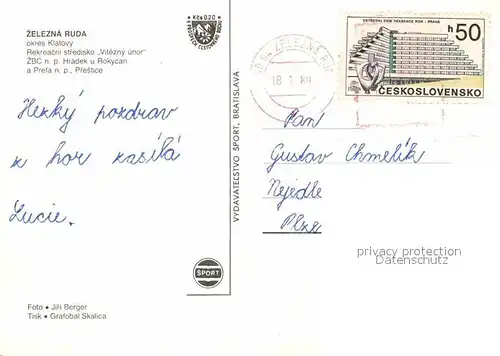 ŽELEZNÁ RUDA
okres Klatovy
Rekreační středisko „Vítězný únor"
ŽBC n. p. Hrádek u Rokycan
a Prefa n. p., Přeštice
Kčs 0,20
Hezký pozdrav
z hor zasílá
Lucie.
Foto • Jiří Berger
Tisk • Grafobal Skalica
VYDAVATEĽSTVO ŠPORT, BRATISLAVA
ŠPORT
ŽELEZNÁ RUDA
18 1
ÚSTŘEDNÍ DŮM
PRAHA
h 50
ČESKOSLOVENSKO
Paní
Gustav Chmelík
Nejedle
Plzeň
privacy protection
Datenschutz